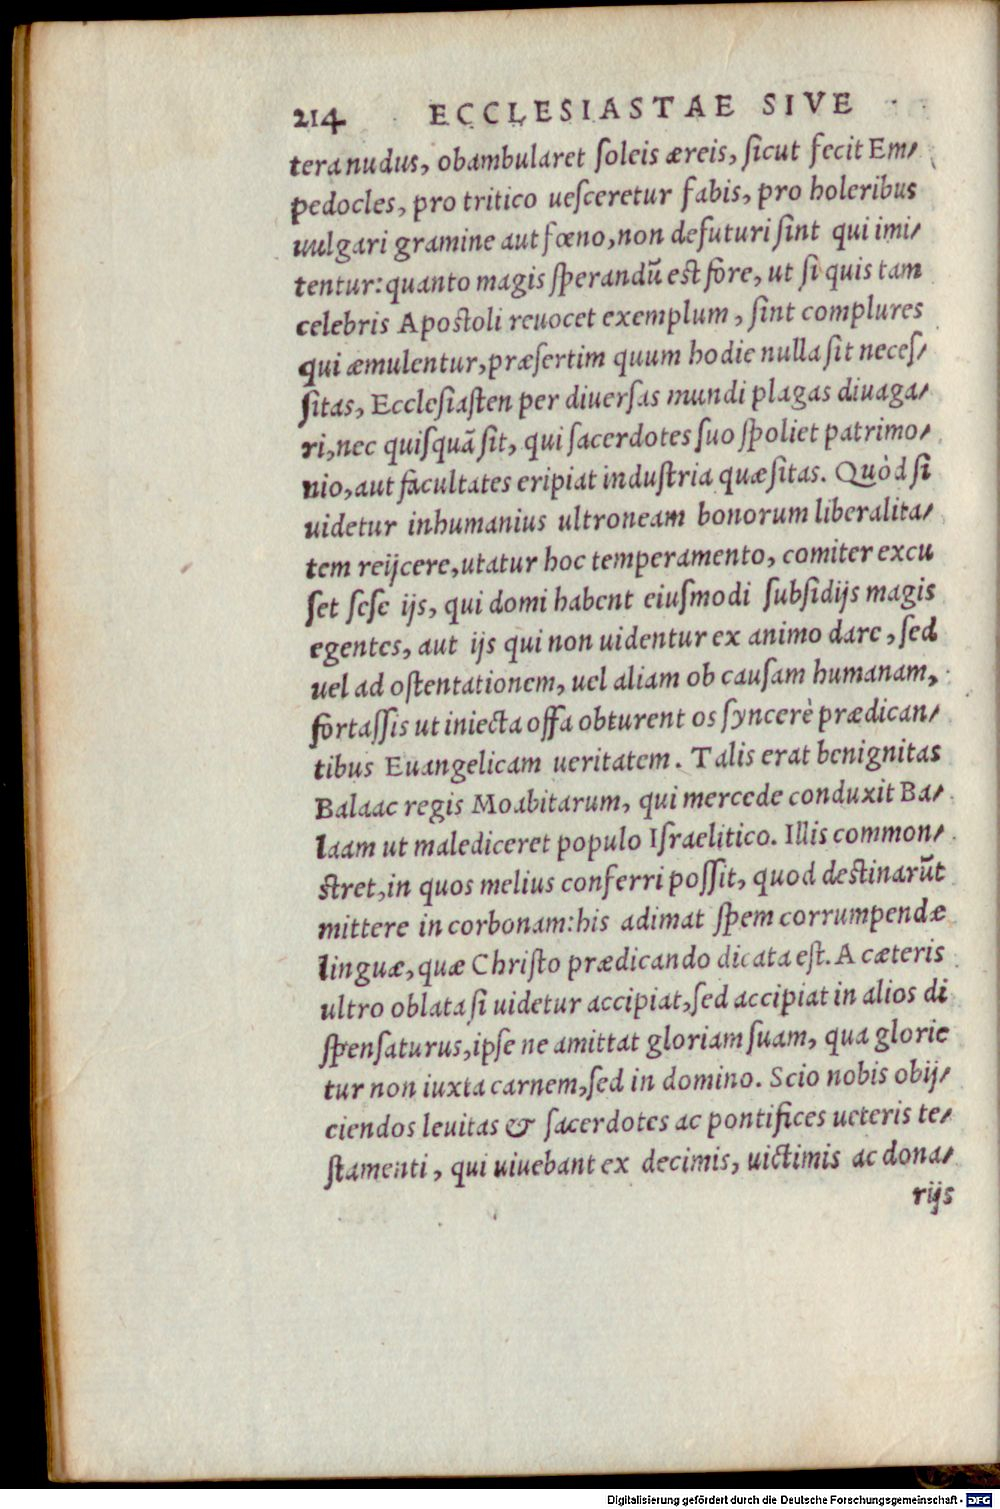 214 ECCLESIASTAE SIVE
tera nudus, obambularet ſoleis æreis, ſicut fecit Em⸗
pedocles, pro tritico ueſceretur fabis, pro holeribus
uulgari gramine aut fœno, non defuturi ſint qui imi⸗
tentur: quanto magis ſperandũ est fore, ut ſi quis tam
celebris Apostoli reuocet exemplum, ſint complures
qui æmulentur, præſertim quum hodie nulla ſit neceſ⸗
ſitas, Eccleſiaſten per diuerſas mundi plagas diuaga⸗
ri, nec quiſquã ſit, qui ſacerdotes ſuo ſpoliet patrimo⸗
nio, aut facultates eripiat induſtria quæſitas. Quòd ſi
uidetur inhumanius ultroneam bonorum liberalita⸗
tem reijcere, utatur hoc temperamento, comiter excu
ſet ſeſe ijs, qui domi habent eiuſmodi ſubſidijs magis
egentes, aut ijs qui non uidentur ex animo dare, ſed
uel ad oſtentationem, uel aliam ob cauſam humanam,
fortaſſis ut iniecta offa obturent os ſyncerè prædican⸗
tibus Euangelicam ueritatem. Talis erat benignitas
Balaac regis Moabitarum, qui mercede conduxit Ba⸗
laam ut malediceret populo Iſraelitico. Illis common⸗
stret, in quos melius conferri poſſit, quod destinarũt
mittere in corbonam: his adimat ſpem corrumpendæ
linguæ, quæ Chriſto prædicando dicata eſt. A cæteris
ultro oblata ſi uidetur accipiat, ſed accipiat in alios di
ſpenſaturus, ipſe ne amittat gloriam ſuam, qua glorie
tur non iuxta carnem, ſed in domino. Scio nobis obij⸗
ciendos leuitas & ſacerdotes ac pontifices ueteris te⸗
ſtamenti, qui uiuebant ex decimis, uictimis ac dona⸗
rijs
Digitalisierung gefördert durch die Deutsche Forschungsgemeinschaft - DFG